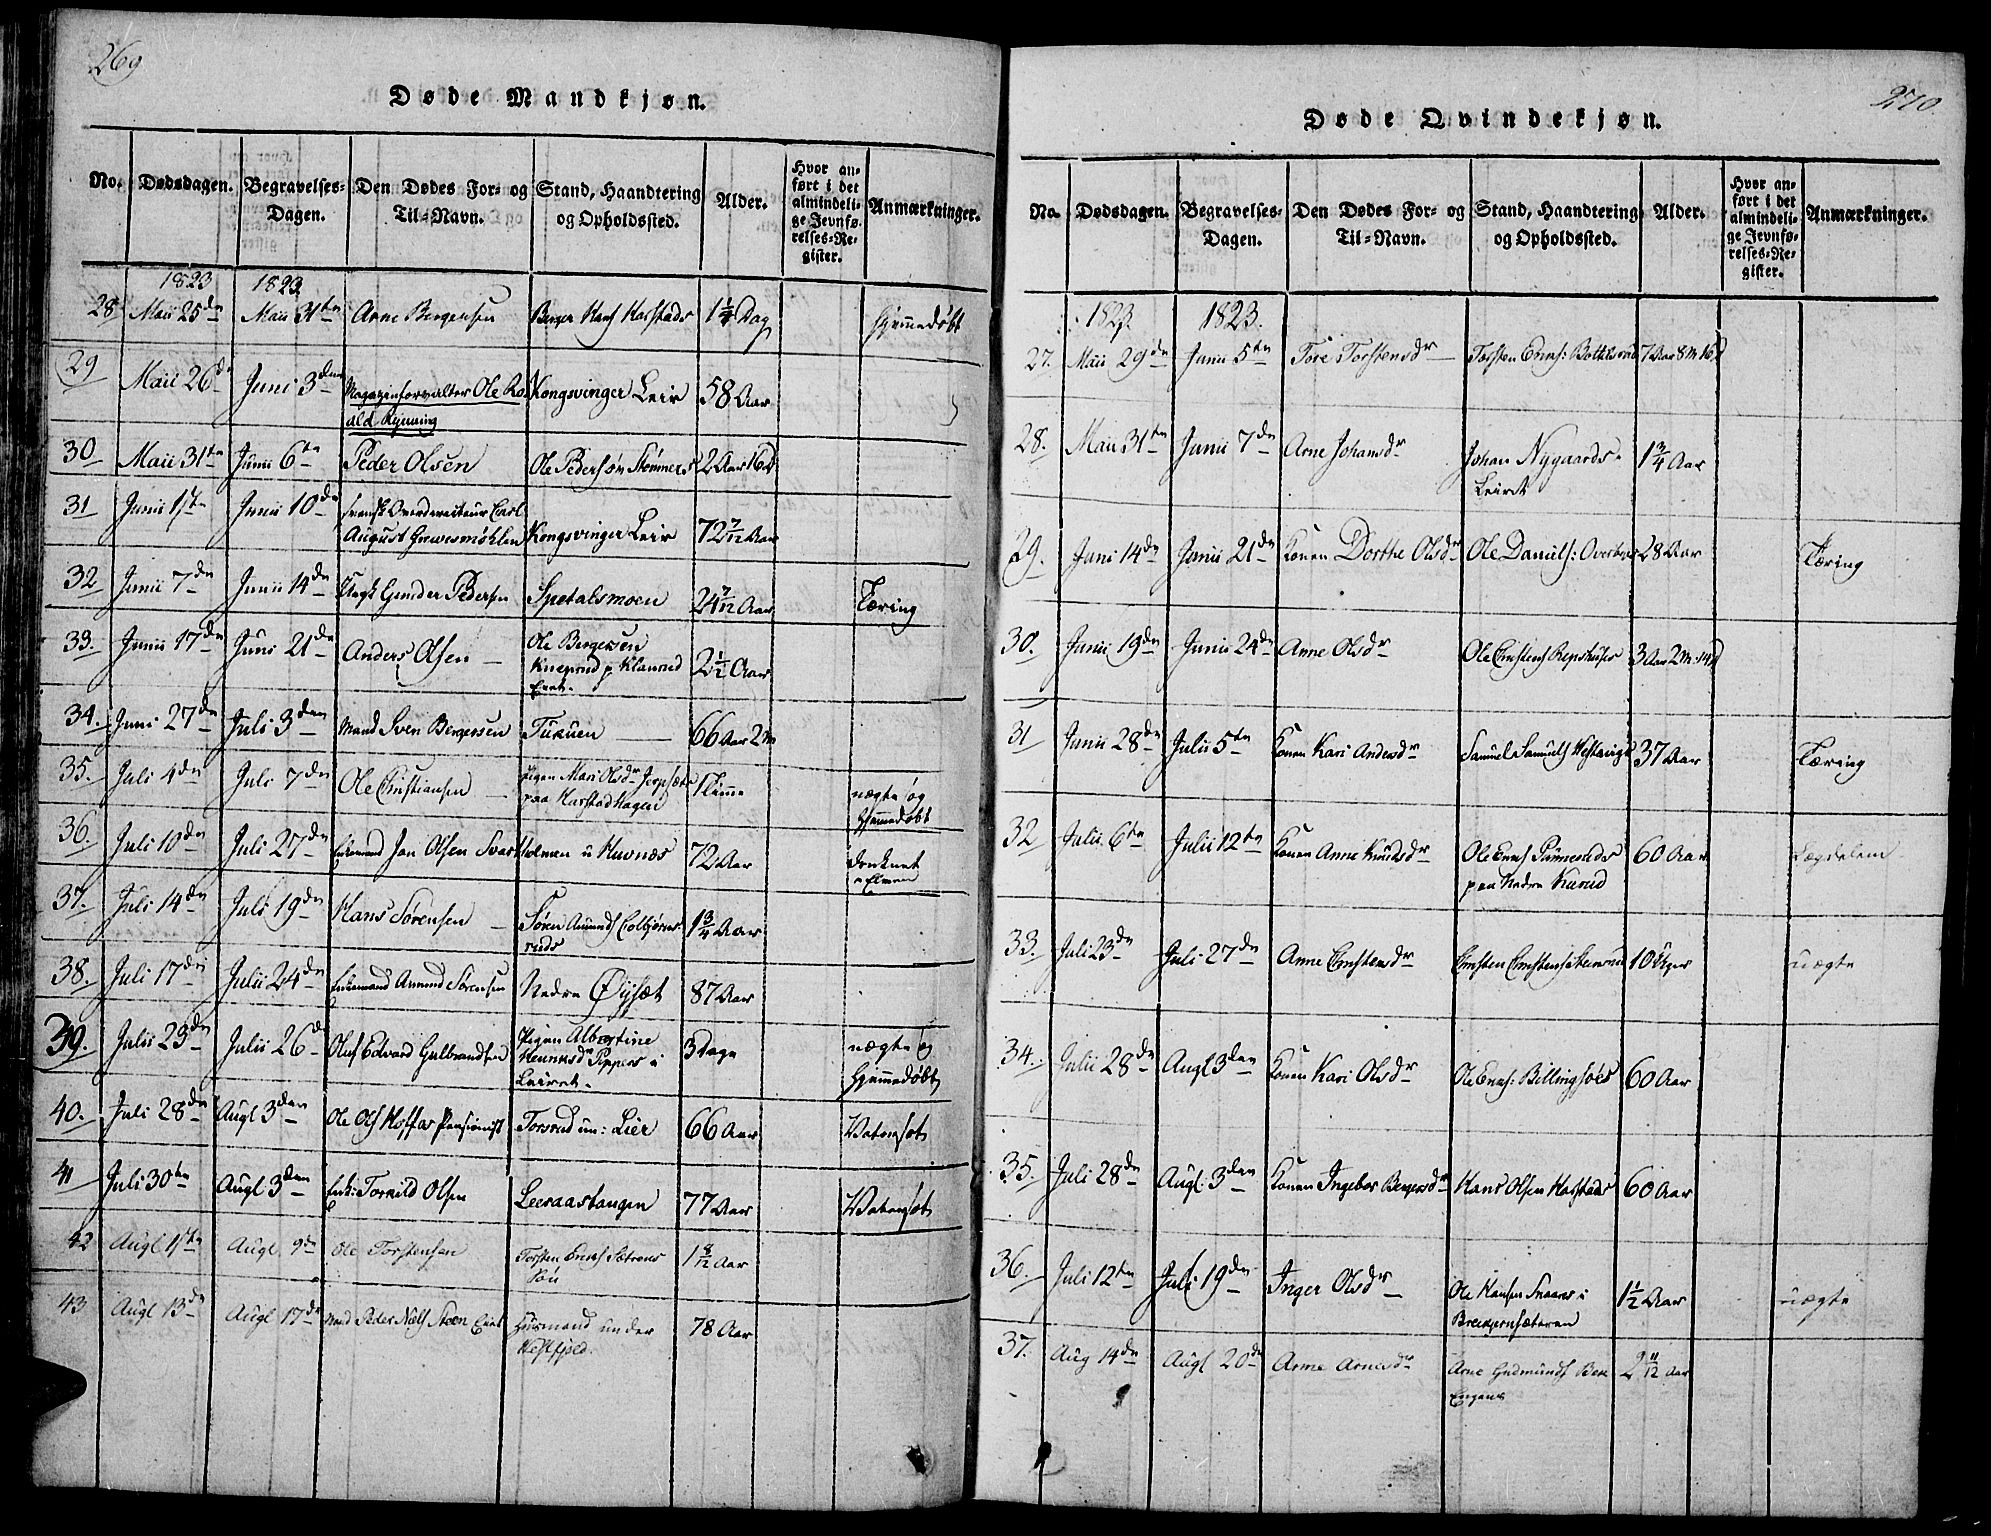 269
Døde Mandkjøn.
No. Dødsdagen. Begravelses-Dagen. Den Dødes For- og Til-Navn. Stand, Haandtering og Opholdssted. Alder. Hvor anført i det almindelige Jevnførelses-Register. Anmærkninger.
1823 1823
28 Maii 25de Maii 31te Arne Bergersen Berger Hans Harstads 1 1/4 Dag Hjemmedøbt
29 Maii 26de Junii 3den Magazinforvalter Ole Ro-
ald Rynning Kongsvinger Leir 58 Aar
30 Maii 31te Junii 6te Peder Olsen Ole Pedersøn 2 Aar 16 D
31 Junii 1ste Junii 10de Svensk Overdirecteur Carl
August Grewesmøhlen Kongsvinger Leir 72 7/12 Aar
32 Junii 7de Junii 14de Gunder Pedersen Spetalsmoen 24 7/12 Aar Tæring
33. Junii 17de Juni 21de Anders Olsen Ole Bergersen
Kneprud p Klanrud
Eiet. 2 1/2 Aar
34. Juni 27de Juli 3den Mand Sven Bergersen 66 Aar 2 M
35. Juli 4de Juli 7de Ole Christiansen Pigen Mari Olsdr
paa Harstadhagen 1 Time uægte og
Hjemmedøbt
36. Juli 10de Juli 27de Enkemand Jon Olsen Svartholmen u Huvnæs 72 Aar druknet
i Elven
37. Juli 14de Juli 19de Hans Sørensen Søren Amunds Colbjørns-
ruds 1 3/4 Aar
38. Juli 17de Julii 24de Enkemand Amund Sørensen Nedre Øysæt 87 Aar
39. Julii 23de Julii 26de Oluf Edvard Gulbrandsen Pigen Albertine
Henriksdr Poppes i
Leiret. 3 Dage uægte og
Hjemmedøbt
40. Juli 28de Augl 3den Ole Ols Hoffar Pensionist Torsrud un: Lier 66 Aar Vatersot
41 Juli 30te Augl 3den Enk: Torkild Olsen Leeraastangen 77 Aar Vatersot
42 Augl 1ste Augl 9de Ole Torstensen Torsten Ericks Sætrens
Søn 1 8/12 Aar
43 Augl 13de Augl 17de Mand Peder Niels Steen Huusmand under
Hestfjeld. 78 Aar
270
Døde Qvindekjøn.
No. Dødsdagen. Begravelses-Dagen. Den Dødes For- og Til-Navn. Stand, Haandtering og Opholdssted. Alder. Hvor anført i det almindelige Jevnførelses-Register. Anmærkninger.
1823. 1823.
27. Maii 29de Junii 5te Tore Torstensdr Torsten Erichs: 7 Aar 8 M 16
28. Maii 31te Junii 7de Arne Johansdr Johan Nygaards
Leiret 1 3/4 Aar
29. Juni 14de Junii 21de Konen Dorthe Olsdr Ole Daniels: Overbye 28 Aar Tæring
30. Junii 19de Junii 24de Anne Olsdr Ole Christens 3 Aar 2 M. 14 D
31 Junii 28de Julii 5te Konen Kari Andersdr Samuel Samuels 37 Aar Tæring
32 Julii 6te Julii 12te Konen Anne Knudsdr Ole Erichs
paa Nedre 60 Aar Lægdelem
33. Juli 23de Juli 27de Anne Christensdr Christen Christens 10 Uger uægte
34. Julii 28de Augl 3den Konen Kari Olsdr Ole Erichs: Billingsøes 60 Aar
35. Juli 28de Augl. 3den Konen Ingebor Bergersdr Hans Olsen Harstads 60 Aar
36. Juli 12te Juli 19de Inger Olsdr Ole Hansen Snaares i
Breikjernsæteren 1 1/2 Aar uægte
37. Aug 14de Augl 20de Anne Arnesdr Arne Gudmunds
Engene 2 11/12 Aar